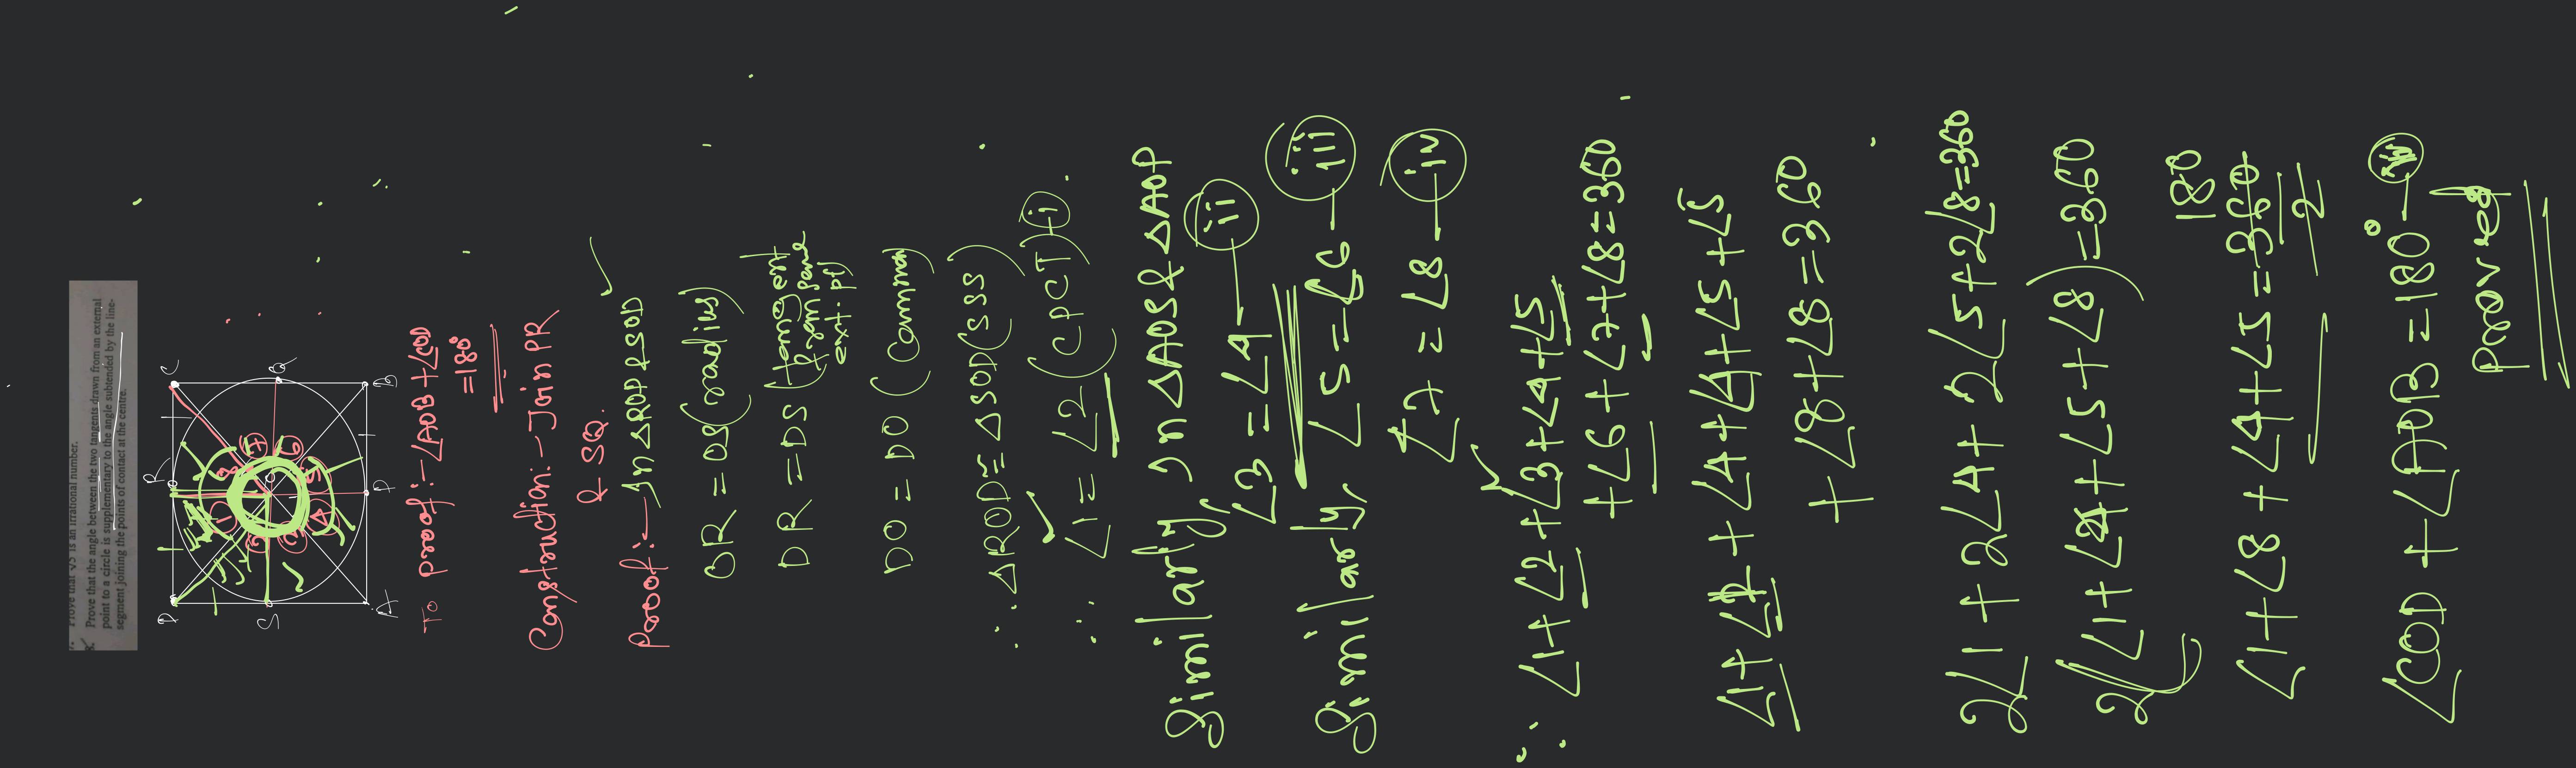 7. Prove that √5 is an irrational number.
8. Prove that the angle between the two tangents drawn from an external
point to a circle is supplementary to the angle subtended by the line-
segment joining the points of contact at the centre.
D R C
S O Q
A P B
1 2 3 4 5 6 7 8
To proof :- ∠AOB + ∠COD
= 180°
Construction:- Join PR
& SQ.
Proof:- In △ROD & SOD
OR = OS (radius)
DR = DS (tangent
from same
ext. pt)
DO = DO (Common)
∴ △ROD ≅ △SOD (SSS)
∴ ∠1 = ∠2 (CPCT) - i
Similarly, In △AOS & △AOP
∠3 = ∠4 - ii
Similarly, ∠5 = ∠6 - iii
∠7 = ∠8 - iv
∴ ∠1 + ∠2 + ∠3 + ∠4 + ∠5
+ ∠6 + ∠7 + ∠8 = 360
∠1 + ∠1 + ∠4 + ∠4 + ∠5 + ∠5
+ ∠8 + ∠8 = 360
2∠1 + 2∠4 + 2∠5 + 2∠8 = 360
2(∠1 + ∠4 + ∠5 + ∠8) = 360
180
∠1 + ∠8 + ∠4 + ∠5 = 360
2
∠COD + ∠AOB = 180°
proved